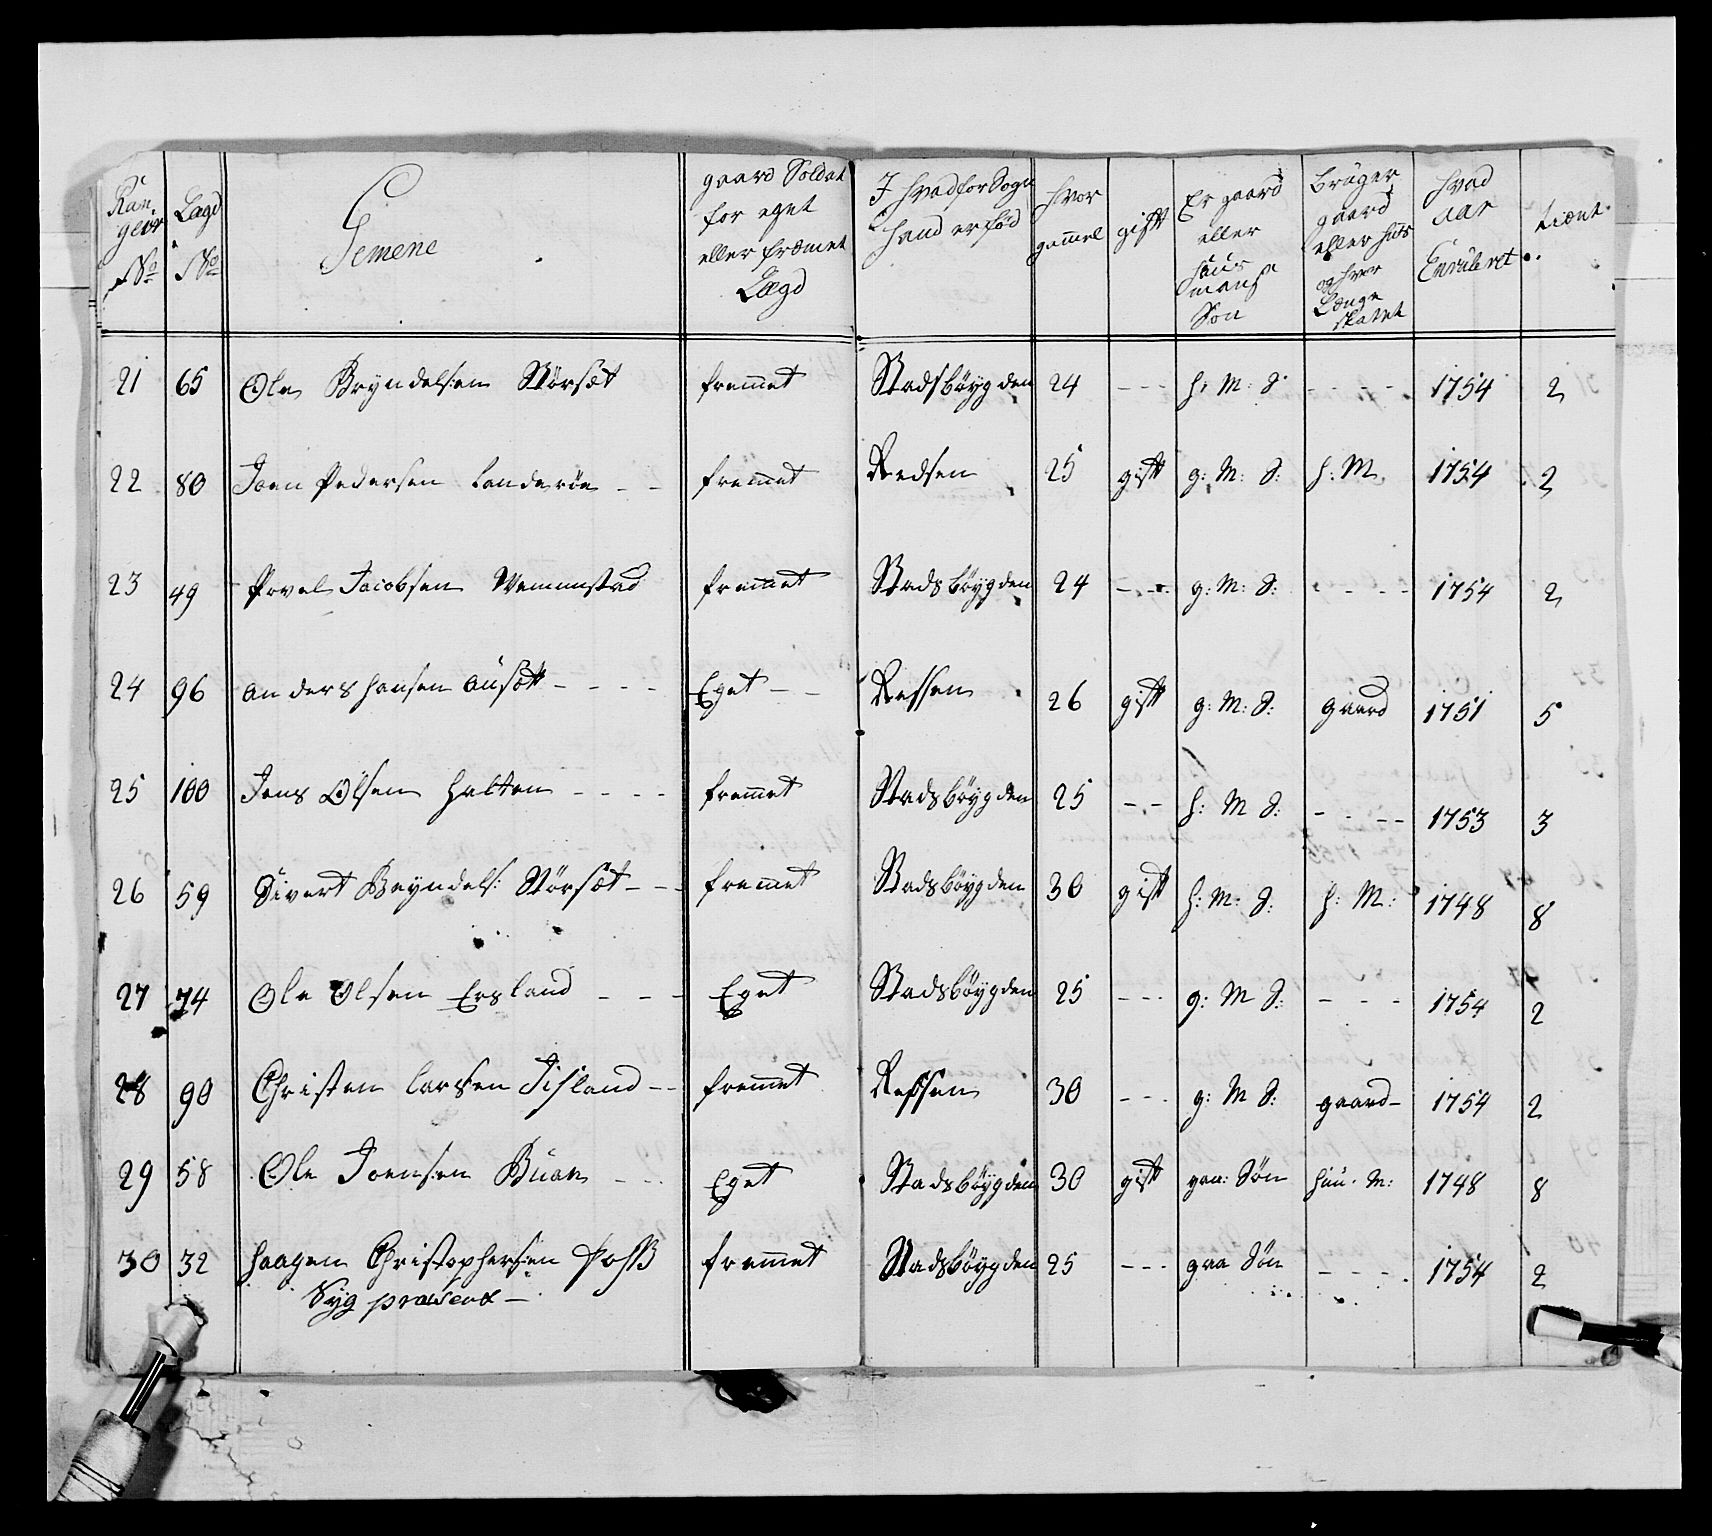 Ran, gevr No | Lægd No | Gemene | gaard Soldat for eget eller fræmet Lægd | I hvad for Sogn hand er fød | hvor gammel | gift | Er gaard eller huus mans Søn | brüger gaard eller huus og hvor Længe skatet | hvad aar Enruleret | tiænt
21 | 65 | Ole Bryndelsen Størset | fremet | Stadsbøygden | 24 | - - - | h: M: S: | - - - - | 1754 | 2
22 | 80 | Joen Pedersen Landerøe - - | fremmet | Redsen | 25 | gift | g: M: S: | h: M | 1754 | 2
23 | 49 | Povel Jacobsen Wemmestad | fremmet | Stadsbøygden | 24 | - - - | g: M: S: | - - - - | 1754 | 2
24 | 96 | anders hansen aüset - - - - | Eget - - | Ressen | 26 | gift | g: M: S: | gaard | 1751 | 5
25 | 100 | Jens Olsen halten - - - - | fremmet | Stadsbøygden | 25 | - - | h: M S: | - - - - | 1753 | 3
26 | 59 | Sivert Bryndels: Størset - - | fremmet | Stadsbøygden | 30 | gift | h: M: S: | h: M: | 1748 | 8
27 | 74 | Ole Olsen Ersland - - - | Eget | Stadsbøygden | 25 | - - - | g: M S: | - - - | 1754 | 2
28 | 90 | Christen Larssen Fisland - - | fremmet | Ressen | 30 | - - - | g: M S: | gaard - | 1754 | 2
29 | 58 | Ole Joensen Buan - - - | Eget | Stadsbøygden | 30 | gift | gaa: Søn | huu: M: | 1748 | 8
30 | 32 | haagen Christophersen | fremmet | Stadsbøygden | 25 | - - - | gaa Søn | - - - - | 1754 | 2
Syg præsent -